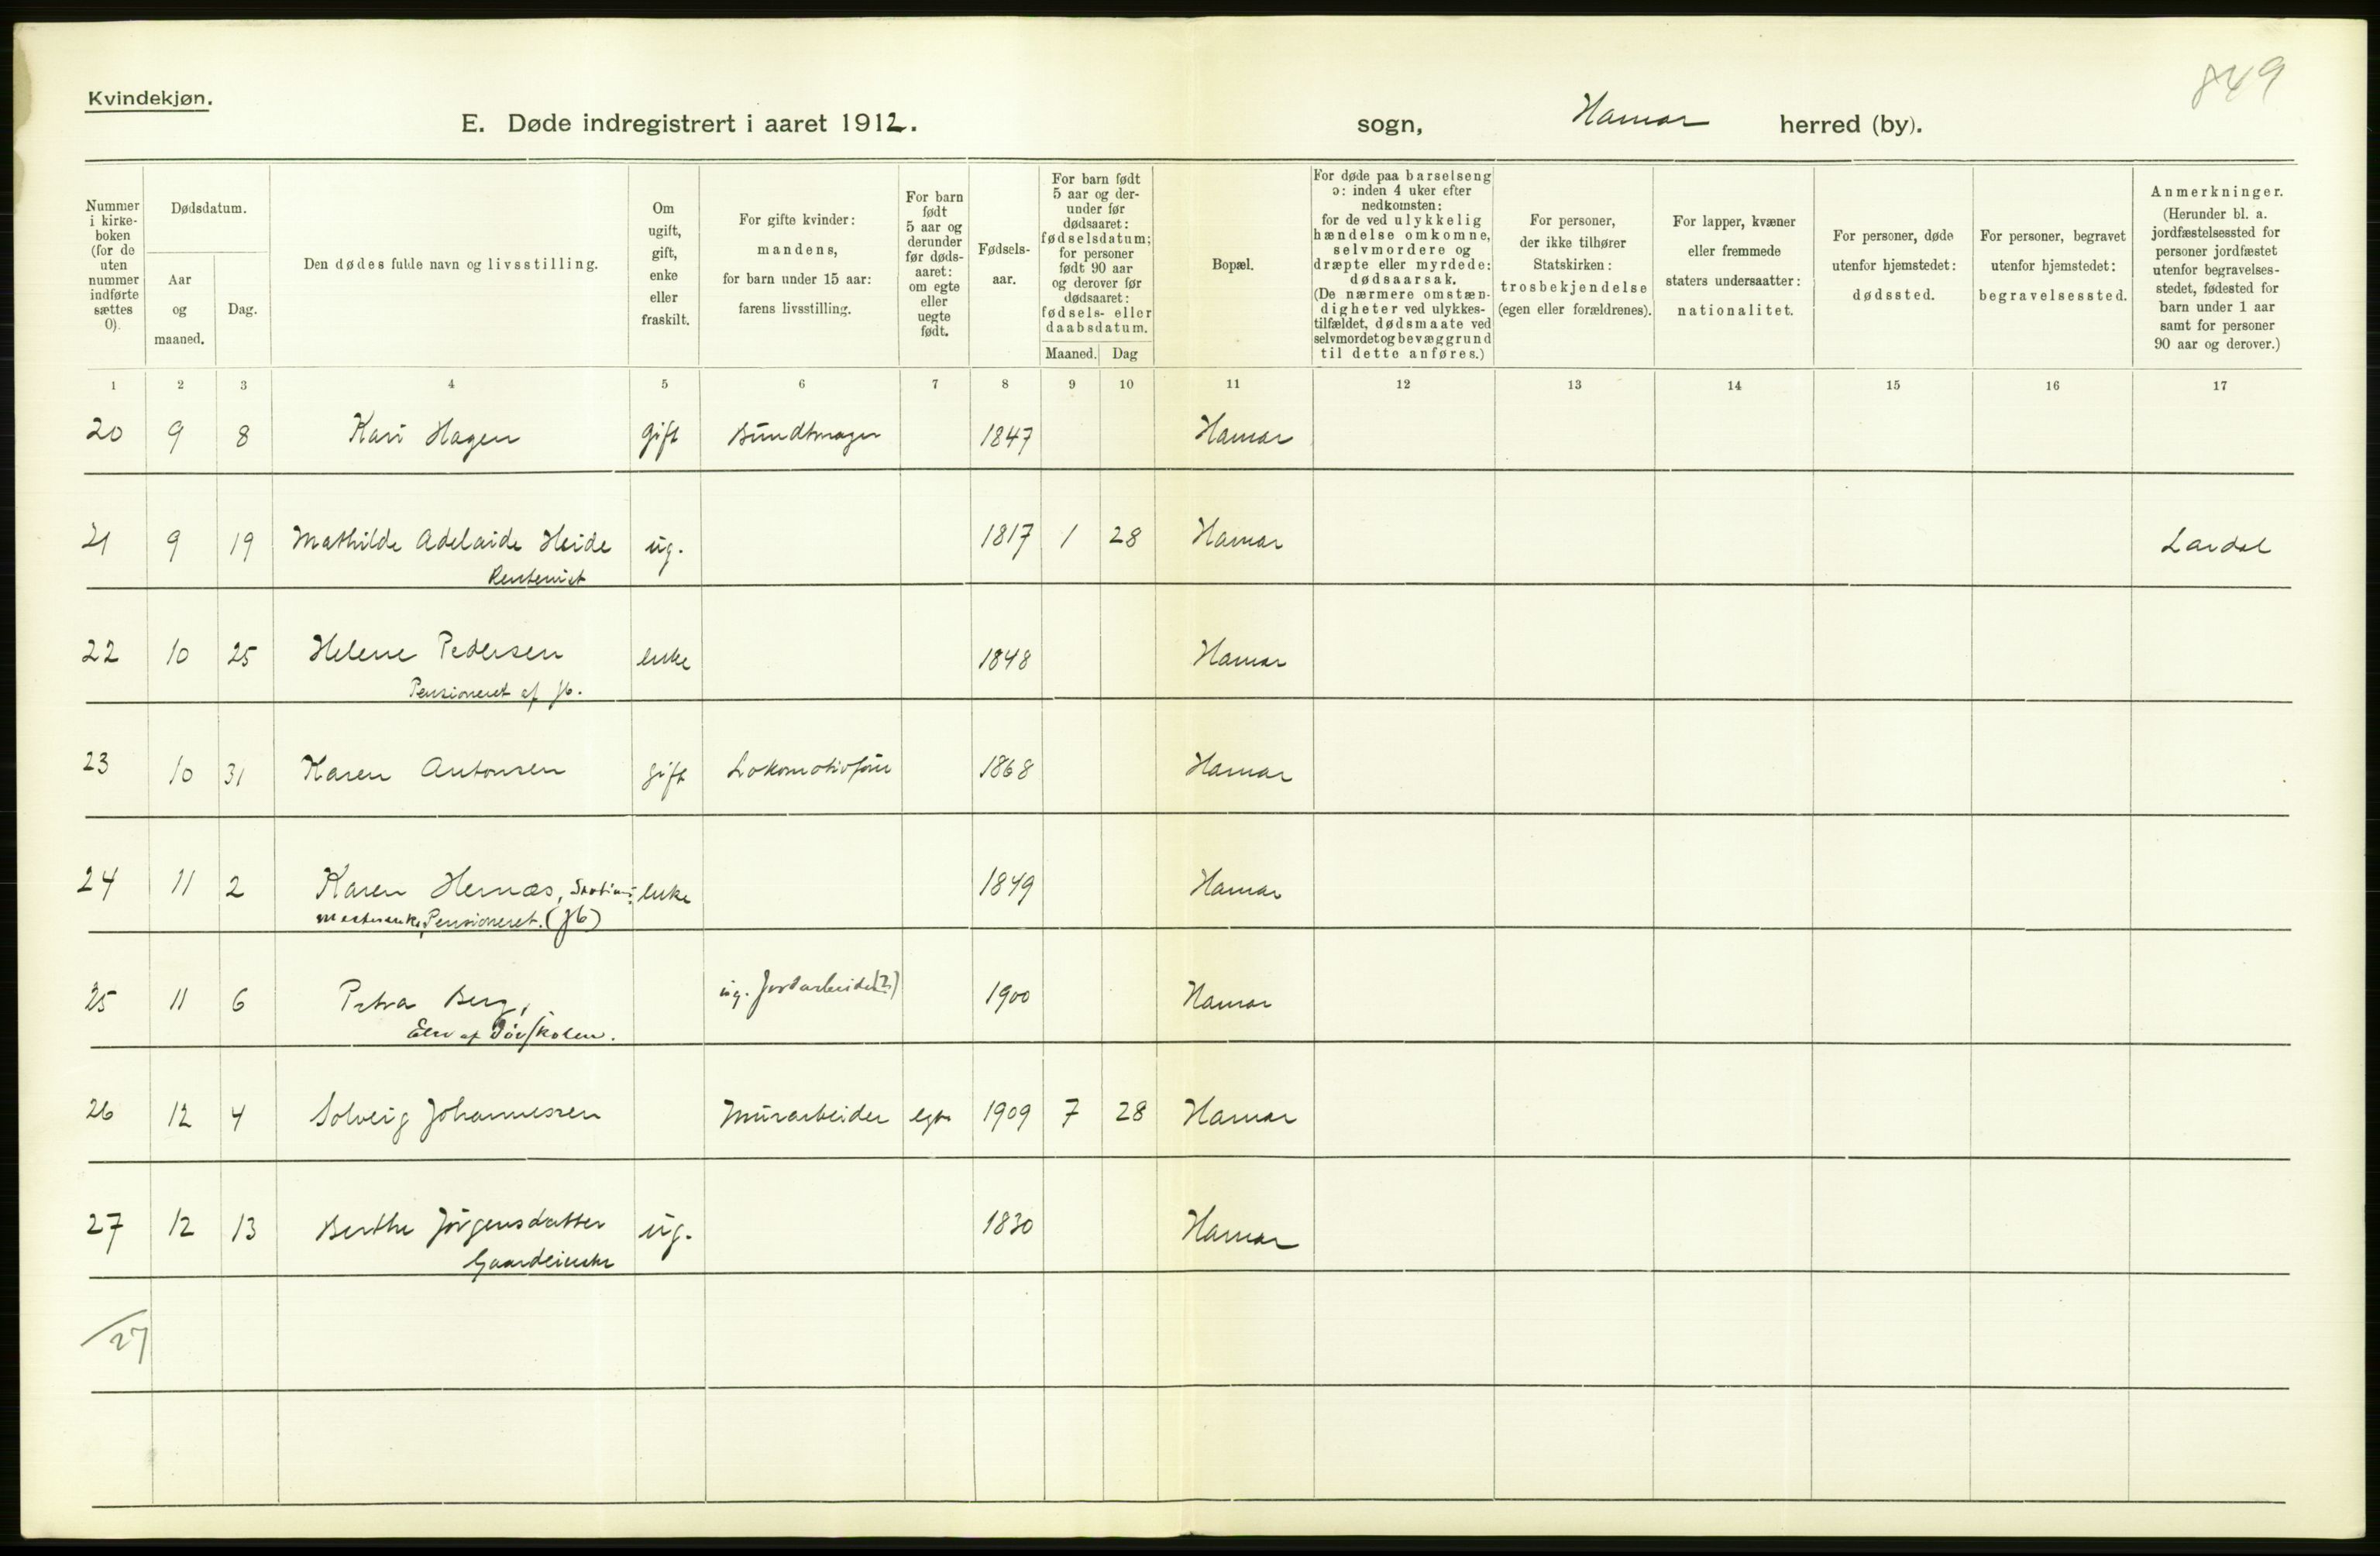 849
Kvindekjøn.
E. Døde indregistrert i aaret 1912. sogn, Hamar herred (by).
Nummer i kirke- boken (for de uten nummer indførte sættes 0).
Dødsdatum.
Aar og maaned.
Dag.
Den dødes fulde navn og livsstilling.
Om ugift, gift, enke eller fraskilt.
For gifte kvinder: mandens, for barn under 15 aar: farens livsstilling.
For barn født 5 aar og derunder før døds- aaret: om egte eller uegte født.
Fødsels- aar.
For barn født 5 aar og der- under før dødsaaret: fødselsdatum; for personer født 90 aar og derover før dødsaaret: fødsels- eller daabsdatum.
Maaned. Dag
Bopæl.
For døde paa barselseng ɔ: inden 4 uker efter nedkomsten: for de ved ulykkelig hændelse omkomne, selvmordere og dræpte eller myrdede: dødsaarsak. (De nærmere omstæn- digheter ved ulykkes- tilfældet, dødsmaate ved selvmordet og bevæggrund til dette anføres.)
For personer, der ikke tilhører Statskirken: trosbekjendelse (egen eller forældrenes).
For lapper, kvæner eller fremmede staters undersaatter: nationalitet.
For personer, døde utenfor hjemstedet: dødssted.
For personer, begravet utenfor hjemstedet: begravelsessted.
Anmerkninger. (Herunder bl. a. jordfæstelsessted for personer jordfæstet utenfor begravelses- stedet, fødested for barn under 1 aar samt for personer 90 aar og derover.)
1 2 3 4 5 6 7 8 9 10 11 12 13 14 15 16 17
20 9 8 Kari Hagen gift Bundtmager 1847 Hamar
21 9 19 Mathilde Adelaide Heide ug. 1817 1 28 Hamar Lardal
Rentenist
22 10 25 Helene Pedersen enke 1848 Hamar
Pensioneret af Jb.
23 10 31 Karen Antonsen gift Lokomotivför 1868 Hamar
24 11 2 Karen Hernæs, Stations- enke 1849 Hamar
mesterenke, Pensioneret. (Jb)
25 11 6 Petra Berg, ug. Jordarbeider(?) 1900 Hamar
Elev af Døvskolen.
26 12 4 Solveig Johannessen Murarbeider egte 1909 7 28 Hamar
27 12 13 Berthe Jörgensdatter ug. 1830 Hamar
27